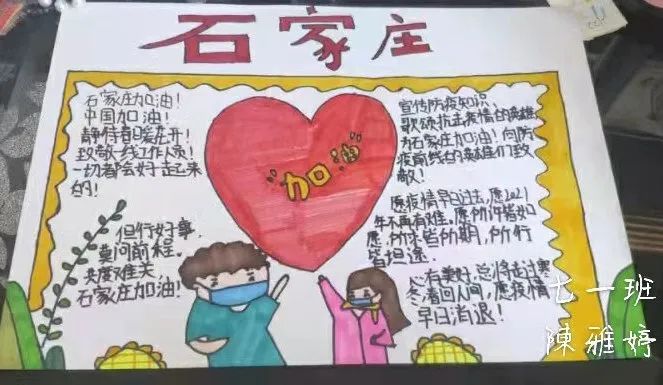 石家庄
石家庄加油!
中国加油!
静待春暖花开!
致敬一线工作人员!
一切都会好起来
的!
但行好事,
莫问前程。
共度难关
石家庄加油!
加油
宣传防疫知识,
歌颂抗击疫情的英雄
为石家庄加油!向防
疫前线的英雄们致
敬!
愿疫情早日过去,愿2021
年不再有难。愿所许皆如
愿,所求皆所期,所行
皆坦途。
心有美好,总将走过寒
冬,春回人间,愿疫情
早日消退!
七一班
陳雅婷